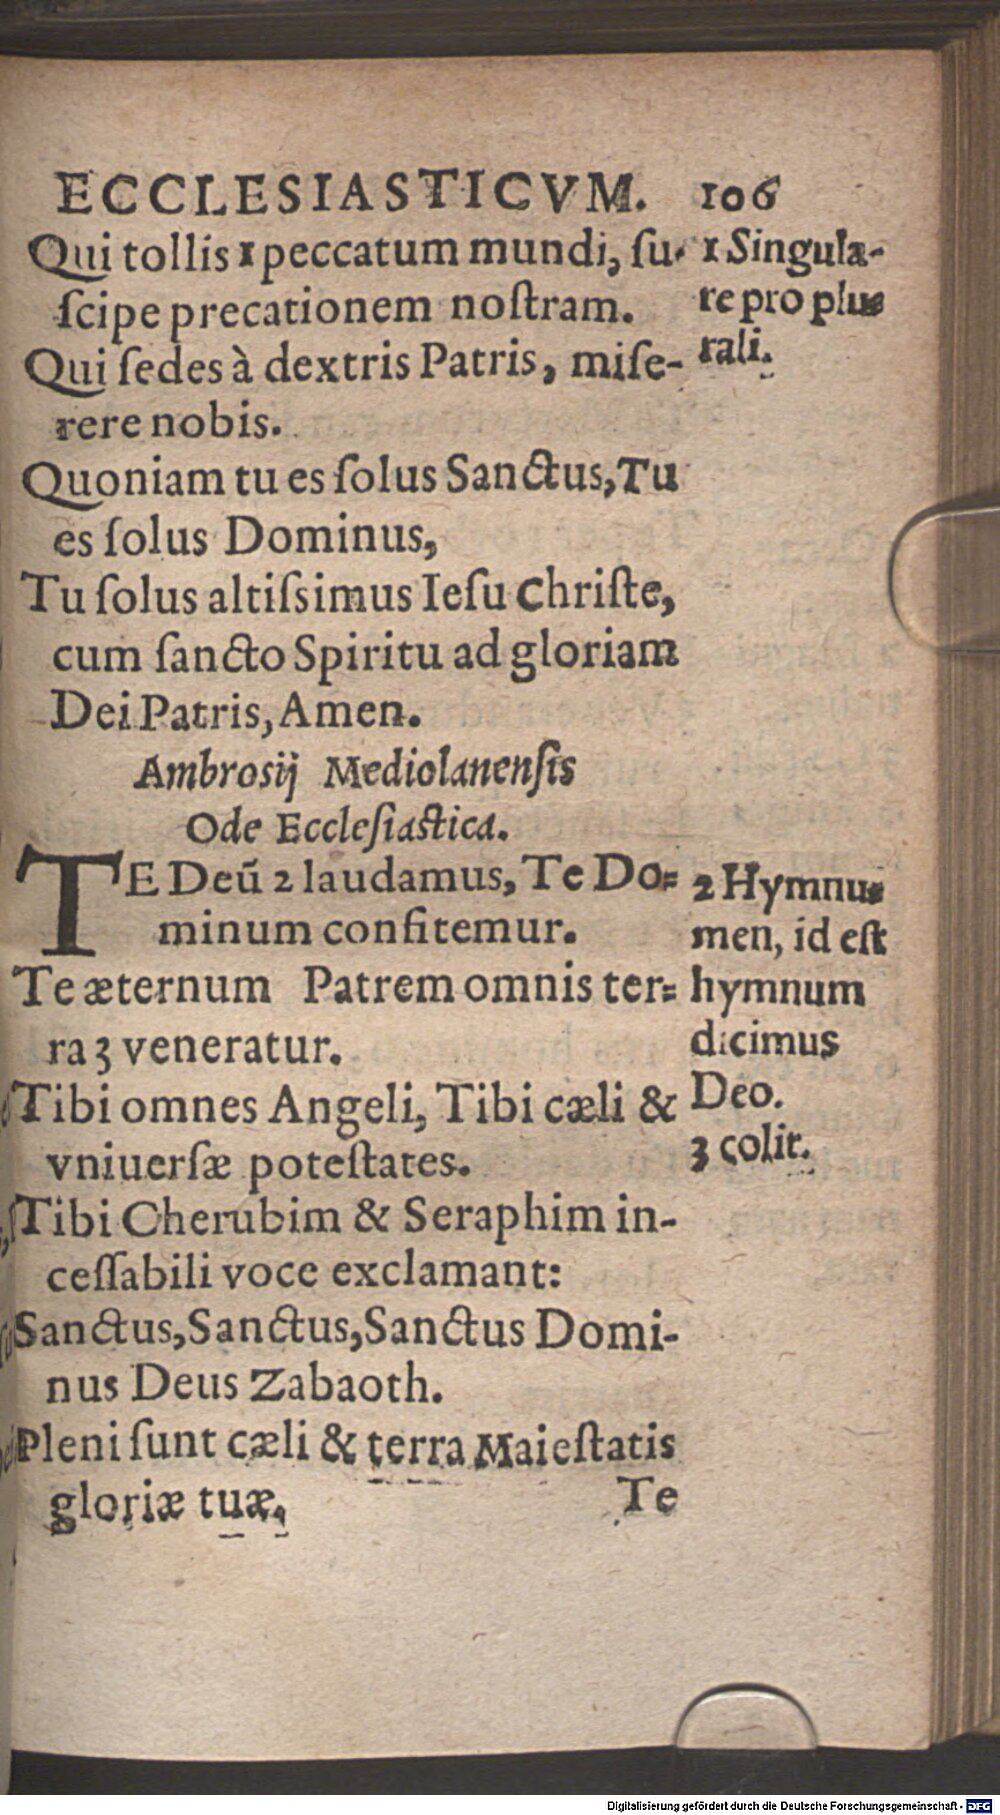 ECCLESIASTICVM. 106
Qui tollis 1 peccatum mundi, ſu-
ſcipe precationem noſtram.
Qui ſedes à dextris Patris, miſe-
rere nobis.
Quoniam tu es ſolus Sanctus, Tu
es ſolus Dominus,
Tu ſolus altiſsimus Ieſu Chriſte,
cum ſancto Spiritu ad gloriam
Dei Patris, Amen.
Ambrosij Mediolanenſis
Ode Eccleſiaſtica.
TE Deū 2 laudamus, Te Do=
minum confitemur.
Te æternum Patrem omnis ter=
ra 3 veneratur.
Tibi omnes Angeli, Tibi cæli &
vniuerſæ poteſtates.
Tibi Cherubim & Seraphim in-
ceſſabili voce exclamant:
Sanctus, Sanctus, Sanctus Domi-
nus Deus Zabaoth.
Pleni ſunt cæli & terra Maieſtatis
gloriæ tuæ.
Te
1 Singula-
re pro plu=
rali.
2 Hymnu=
men, id eſt
hymnum
dicimus
Deo.
3 colit.
Digitalisierung gefördert durch die Deutsche Forschungsgemeinschaft - DFG